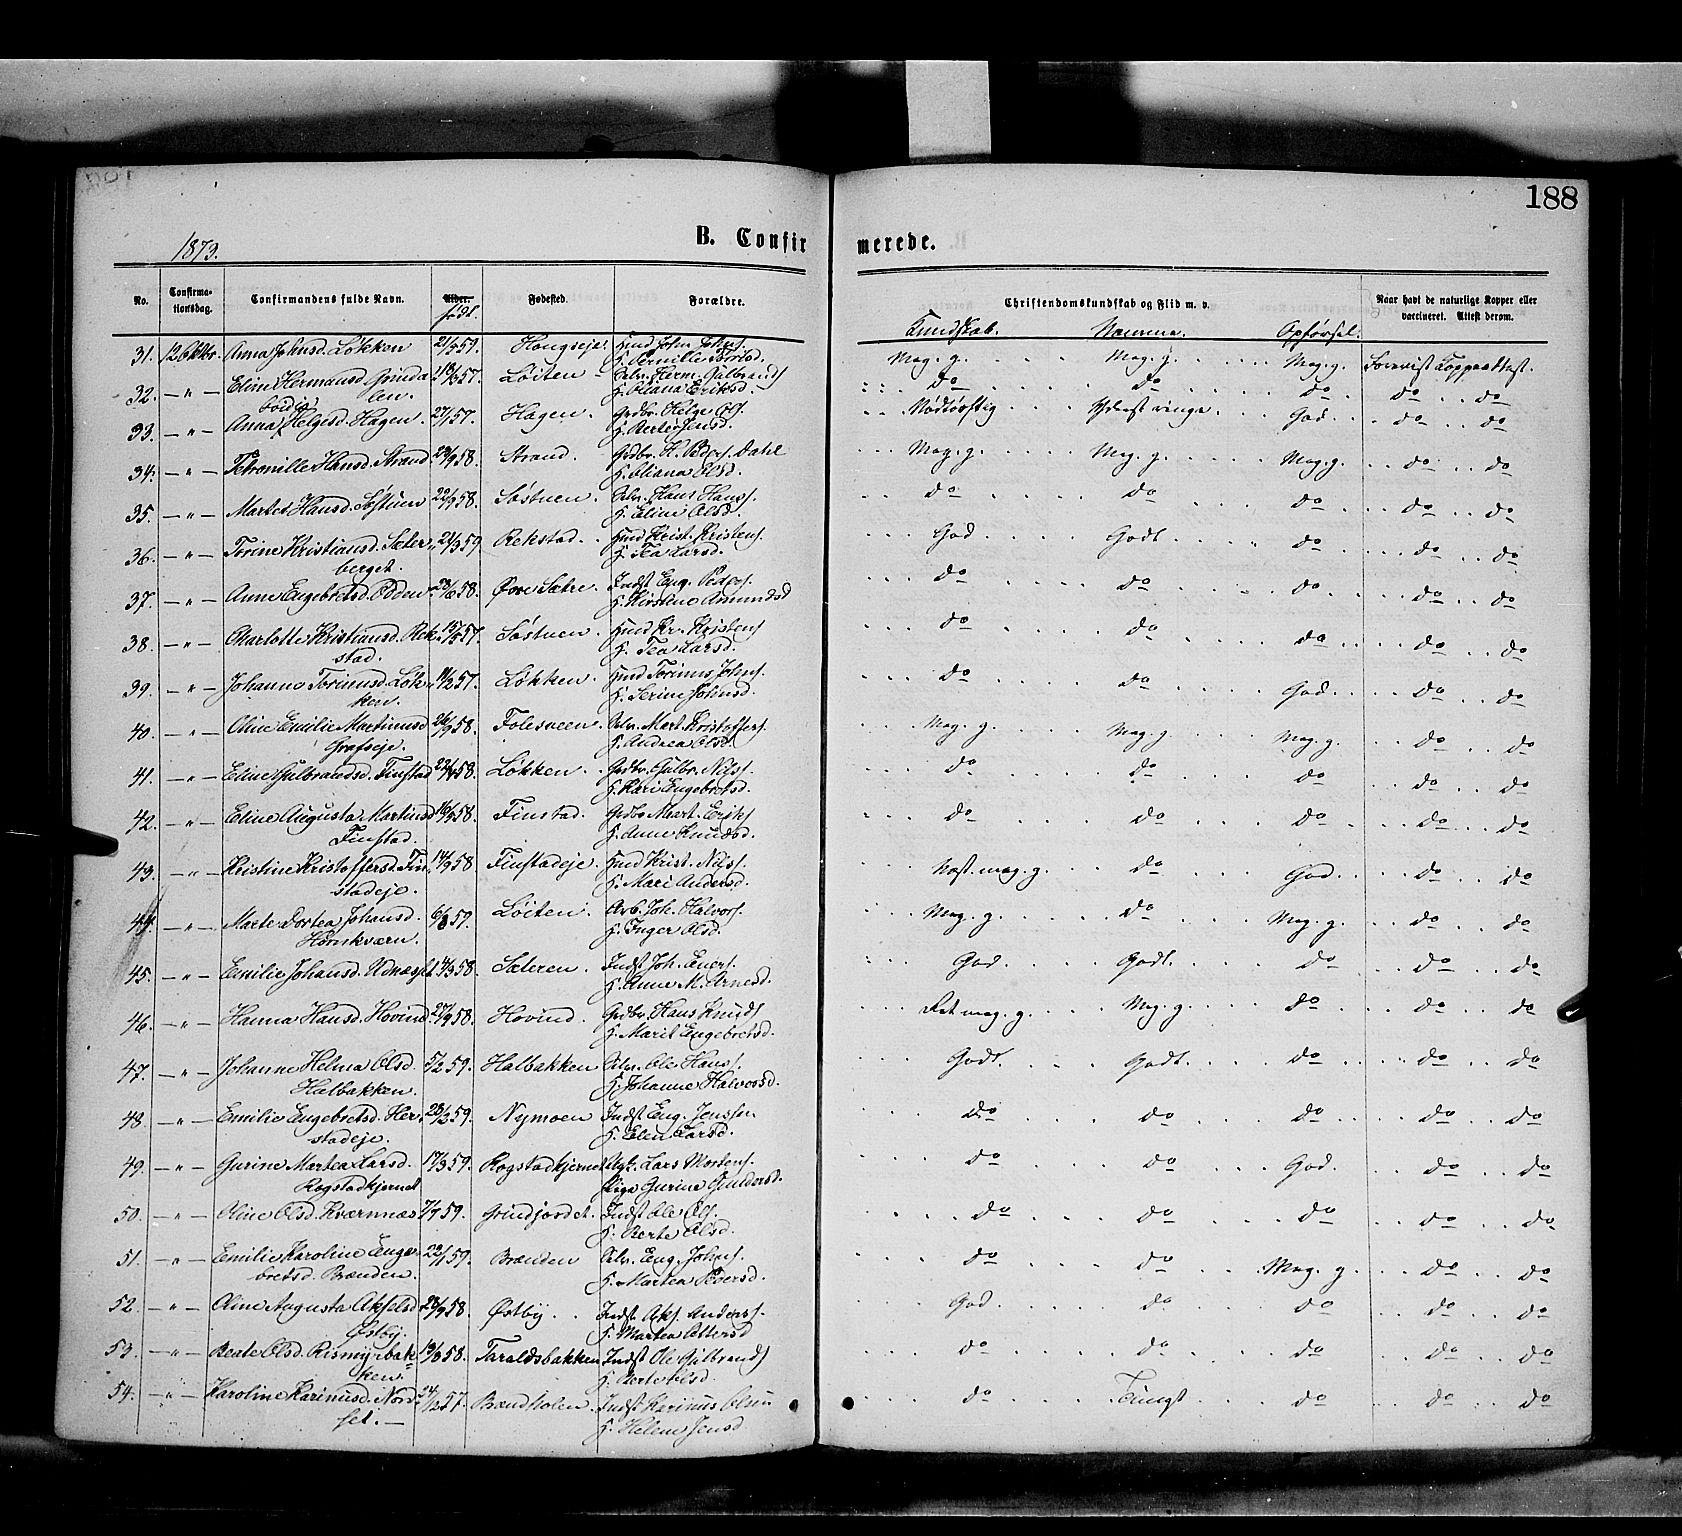 188
1873.
B. Confirmerede.
No. Confirmationsdag. Confirmandens fulde Navn. Alder. født. Fødested. Forældre. Christendomskundskab og Flid m. v. Naar havt de naturlige Kopper eller vaccineret. Attest derom.
Kundskab. Nemme. Opførsel.
31. 12 Oktbr. Anna Johnsd. Løkken 21/3 59. Hmd John Johns. Mag. g. Mag. g. Mag. g. Forevist Koppeattest.
32. — " — Eline Hermansd. Grindalen. 57. Løiten Selv. Herm. Gulbrands. K. Oliana Eriksd. do do do do do
33. — " — Anna Helgesd. Hagen. 27/1 57. Hagen Grdbr. Helge Ols. Nødtørftig Yderst ringe God do do
34. — " — Petronille Hansd. Strand 58. Strand. Grdbr. H. Peders. Dahl K. Oliana Olsd. Mag. g. Mag. g. Mag. g. do do
35. — " — Martea Hansd. Søstuen 22/9 58. Søstuen. Selv. Hans Hans. K. Eline Olsd. do do do do do
36. — " — Torine Kristiansd. Sæterberget. 59 Rekstad. Hmd Krist. Kristens. K. Tea Larsd. God Godt do do do
37. — " — Anne Engebretsd. Odden 58. Øvre Sætre. Indst Eng. Peders. K. Kirstine Amundsd do do do do do
38. — " — Charlotte Kristiansd. Rekstad. 57. Søstuen. Hmd Kr. Kristens K. Tea Larsd. do do do do do
39. — " — Johanne Torinusd. Løkken. 57. Løkken. Hmd Torinus Johns. K. Serine Johnsd. do do God. do do
40. — " — Oline Emilie Martinusd Grafseje. 26/9 58. Folesveen Selv. Mart. Kristoffers. K. Andrea Olsd. Mag. g. Mag. g Mag. g. do do
41. — " — Eline Gulbrandsd. Finstad 58. Løkken. Grdbr. Gulbr. Nils. K. Kari Engebretsd. do do do do do
42. — " — Eline Augusta Martinsd Finstad. 58. Finstad. Grdbr Mart. Eriks K. Anne Knudsd. do do do do do
43. — " — Kristine Kristoffersd. Finstadeje. 14/9 58 Finstadeje. Hmd Krist. Nils. K. Mari Andersd. Næst. mag. g. do God. do do
44. — " — Marte Dortea Johansd. Hornkværn. 6/8 59. Løiten Arb. Joh. Halvors. K. Inger Olsd. Mag. g. do Mag. g do do
45. — " — Emilie Johansd. Udnæset 58. Sæteren. Indst Joh. Eners. K. Anne M. Arnesd. God. Godt. do do do
46. — " — Hanna Hansd. Hovind 27/9 58. Hovind. Grdbr. Hans Knuds K. Marit Engebretsd. Ret mag. g. Mag. g. do do do
47. — " — Johanne Helma Olsd. Halbakken. 5/2 59. Halbakken Selv. Ole Hans. K. Johanne Halvorsd. Godt. Godt. do do do
48. — " — Emilie Engebretsd. Herstadeje. 28/2 59. Nymoen Indst Eng. Jenssen K. Elen Larsd. do do do do do
49. — " — Gurine Martea Larsd. Rogstadkjernet 17/3 59. Rogstadkjernet Ugk. Lars Mortens. Pige Gurine Gundersd. do do God. do do
50. — " — Oline Olsd. Kværnnæs 59. Grindjordet. Indst Ole Ols. K. Berte Olsd. do do do do do
51. — " — Emilie Karoline Engebretsd. Brænden. 22/1 59. Brænden Selv. Eng. Johns. K. Martea Pedersd. do do Mag. g. do do
52. — " — Oline Augusta Akselsd Østby. 28/9 58. Østby. Indst Aks. Anders. K. Martea Ottersd God do do do do
53. — " — Beate Olsd. Rismyrbakken. 58. Taraldsbakken Indst Ole Gulbrands K. Berte Olsd. do do do do do
54. — " — Karoline Karinusd. Nordset. — 57. Brændholen. Indst Karinus Olsen K. Helene Jensd do Tungt do do do